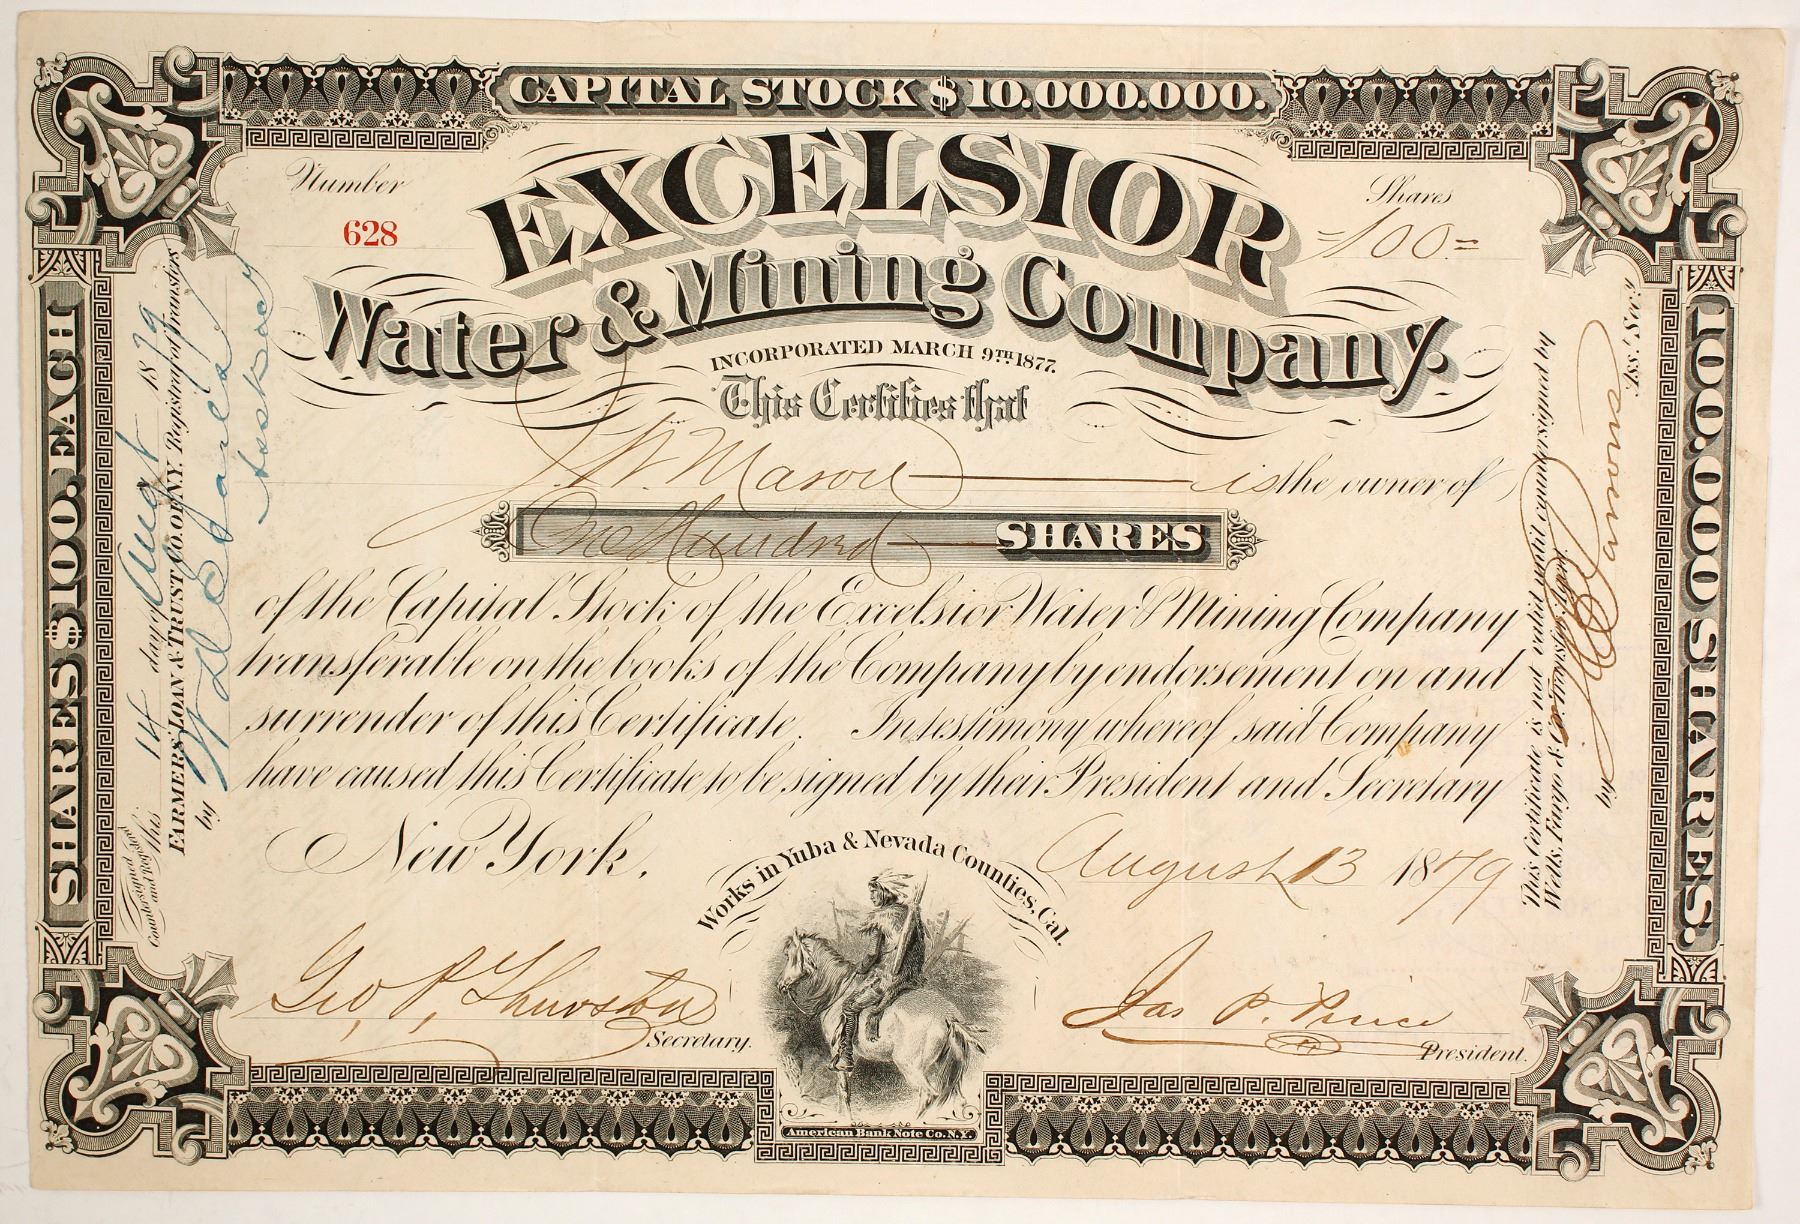 CAPITAL STOCK $10.000.000.
Number
628
Shares
=100.=
EXCELSIOR
Water & Mining Company.
INCORPORATED MARCH 9TH 1877.
This Certifies that
J. W. Mason is the owner of
One Hundred SHARES
of the Capital Stock of the Excelsior Water & Mining Company
transferable on the books of the Company by endorsement on and
surrender of this Certificate. In testimony whereof said Company
have caused this Certificate to be signed by their President and Secretary
New York. August 13 1879
Works in Yuba & Nevada Counties, Cal.
Geo. P. Thurston
Secretary.
Jas P. Pierce
President.
American Bank Note Co. N.Y.
SHARES $100. EACH
Countersigned and Registered this 14 day of Augt 1879
FARMERS' LOAN & TRUST CO. OF N.Y. Registrar of Transfers
by
100.000 SHARES.
This Certificate is not valid until countersigned by
Wells, Fargo &
by